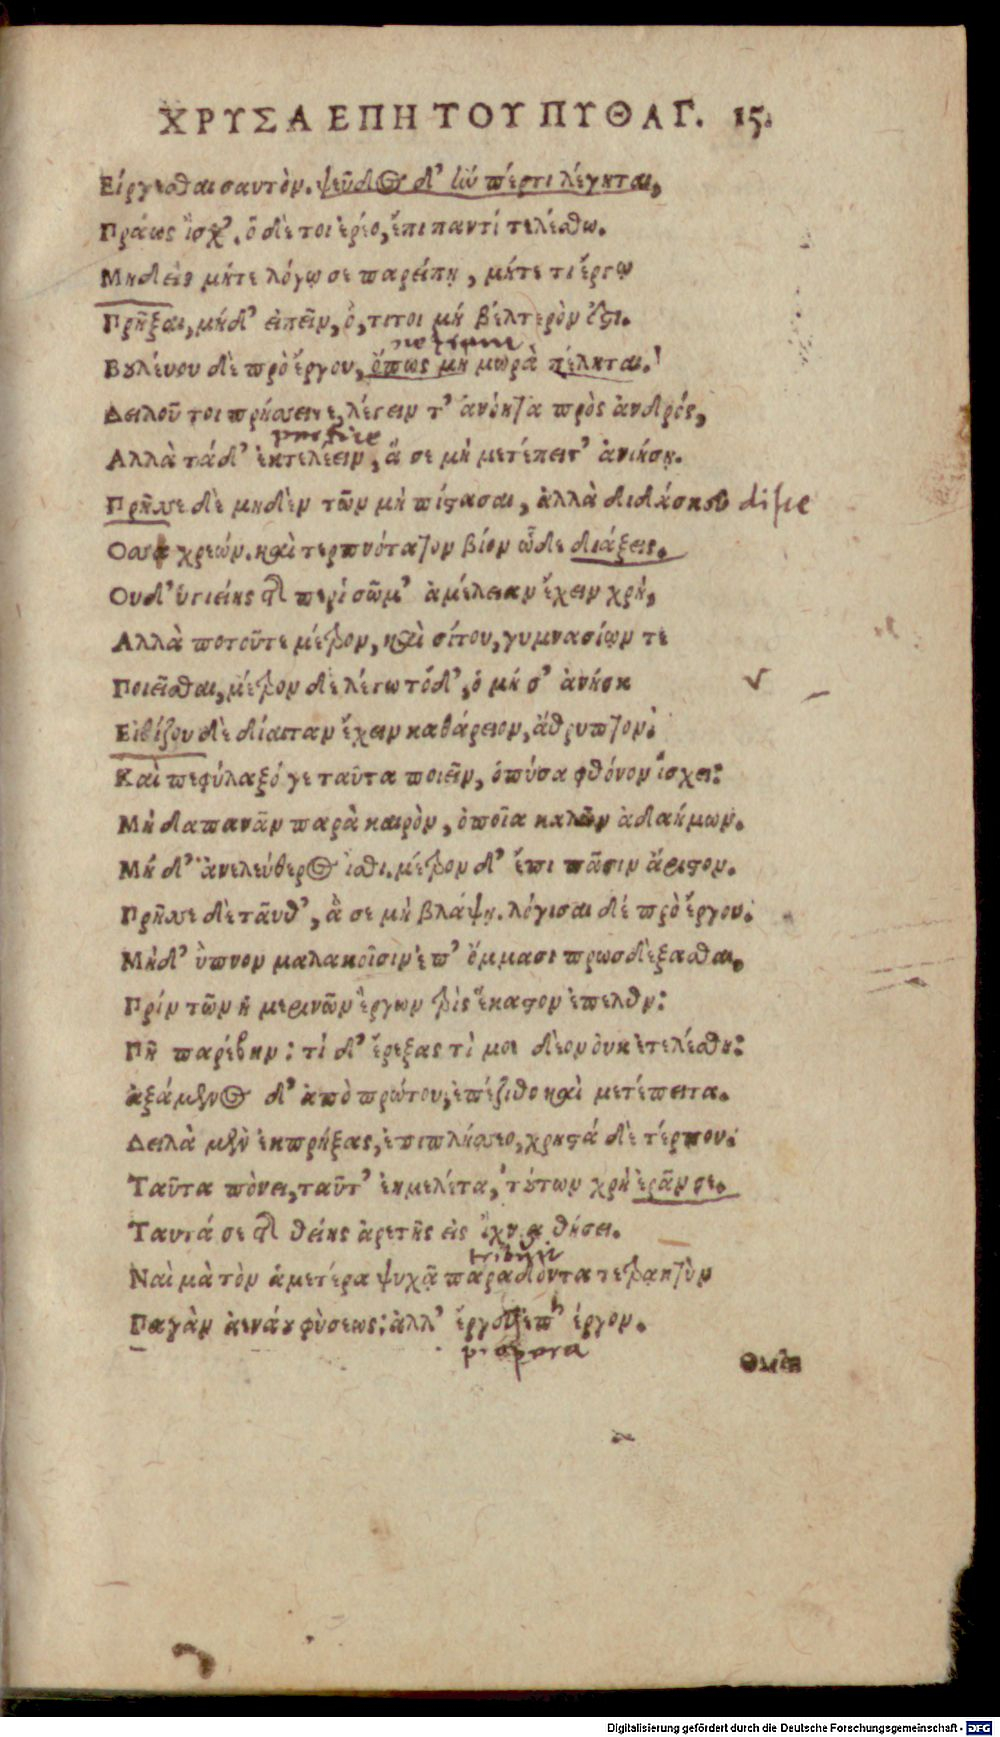 ΧΡΥΣΑ ΕΠΗ ΤΟΥ ΠΥΘΑΓ. 15.
Είργεσθαι σαυτὸν. ψεῦδος δ' ἰώ πέρτι λέγηται,
Πράως ἴσχ'. ὃ δέ τοι ἐρέο, ἔπι παντί τελέσθω.
Μηδεὶς μήτε λόγῳ σε παρείπῃ, μήτε τι ἔργῳ
Πρῆξαι, μήδ' ειπεῖν, ὅ, τι τοι μή βέλτερὸν ἔστι.
Βουλέυου δὲ πρὸ ἔργου, ὅπως μη μωρὰ πέληται.
Δειλοῦ τοι πρήσσειν ε, λέγειν τ' ἀνόητα πρὸς ἀνδρός,
perfice
Αλλὰ τάδ' ἐκτελέειν, ἅ σε μὴ μετέπειτ' ἀνιήσῃ.
Πρῆσσε δὲ μηδὲν τῶν μὴ πίστασαι, ἀλλὰ διδάσκου disce
Οσσα χρεών. καὶ τερπνότατον βίον ὧδε διάξεις.
Ουδ' ὑγιείης τῆς περὶ σῶμ' ἀμέλειαν ἔχειν χρή,
Αλλὰ ποτοῦτε μέτρον, καὶ σίτου, γυμνασίων τε
Ποιεῖσθαι, μέτρον δε λέγω τόδ', ὁ μή σ' ἀνιήσῃ
Ειθίζου δὲ δίαιταν ἔχειν καθάρειον, ἄθρυπτον.
Καὶ πεφύλαξό γε ταῦτα ποιεῖν, ὁπόσα φθόνον ἴσχει:
Μὴ δαπανᾶν παρὰ καιρὸν, ὁποῖα καλῶν ἀδαήμων.
Μή δ' ἀνελεύθερος ἴσθι. μέτρον δ' ἔπι πᾶσιν ἄριστον.
Πρῆσσε δὲ ταῦθ', ἅ σε μὴ βλάψῃ. λόγισαι δέ πρὸ ἔργου.
Μήδ' ὕπνον μαλακοῖσιν ἐπ' ὄμμασι πρωσδέξασθαι,
Πρίν τῶν ἡμερινῶν ἔργων τρὶς ἕκαστον ἐπελθῇν:
Πῆ παρέβην: τί δ' ἔρεξας τὶ μοι δέον οὐκ ἐτελέσθη:
ἀξάμενος δ' ἀπὸ πρώτου, ἐπέξιθο καὶ μετέπειτα.
Δειλὰ μὲν ἐκπρήξας, ἐπιπλήσσεο, χρηστά δὲ τέρπου.
Ταῦτα πόνει, ταῦτ' ἐκμελέτα, τούτων χρὴ ἐρᾶν σε.
Ταυτά σε τῆς θείης ἀρετῆς εἰς ἴχνια θήσει.
Ναὶ μὰ τὸν ἁμετέρα ψυχᾷ παραδόντα τετρακτὺν
Παγὰν ἀενάου φὺσεως: ἀλλ' ἔρχευ ἐπ' έργον.
Digitalisierung gefördert durch die Deutsche Forschungsgemeinschaft - DFG